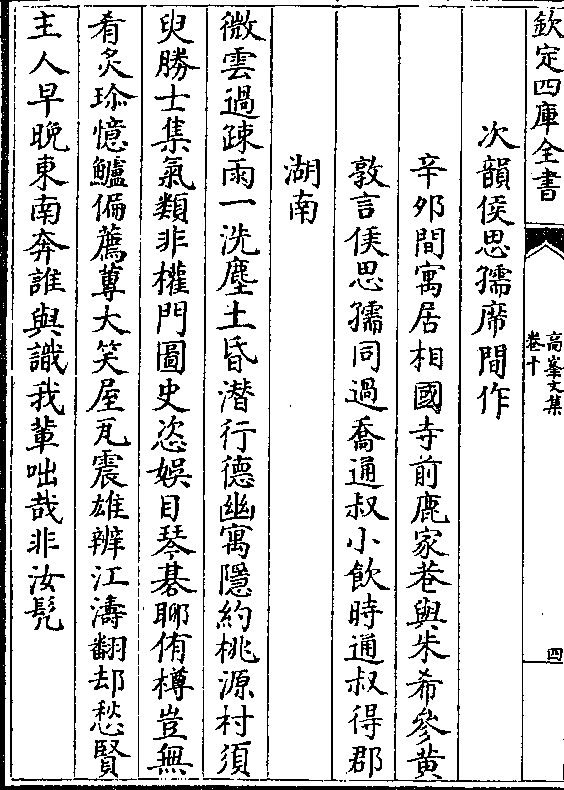 欽定四庫全書
高峯文集
卷十
四
次韻侯思孺席間作
辛夘間寓居相國寺前鹿家巷與朱希參黄
敦言侯思孺同過喬通叔小飲時通叔得郡
湖南
微雲過疎雨一洗塵土昏潛行德幽寓隱約桃源村須
臾勝士集氣類非權門圖史恣娛目琴碁聊侑樽豈無
肴炙珍憶鱸偏薦蓴大笑屋瓦震雄辨江濤翻却愁賢
主人早晚東南奔誰與識我輩咄哉非汝髠